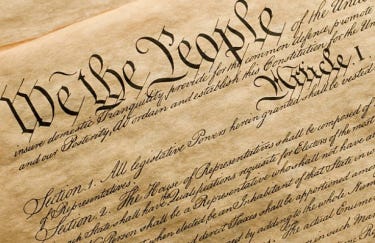 We the People of the United
insure domestic Tranquility, provide for the common defence, promote
and our Posterity, do ordain and establish this Constitution for the Un
Article I
Section 1. All legislative Powers herein granted shall be vested
Representatives.
Section 2. The House of Representatives shall be composed of
State shall have Qualifications requisite for Electors of the most
Person shall be a Representative who shall not have
when elected, be an Inhabitant of that State in w
shall be apportioned am
by adding to the whole Num
The actual Enumer